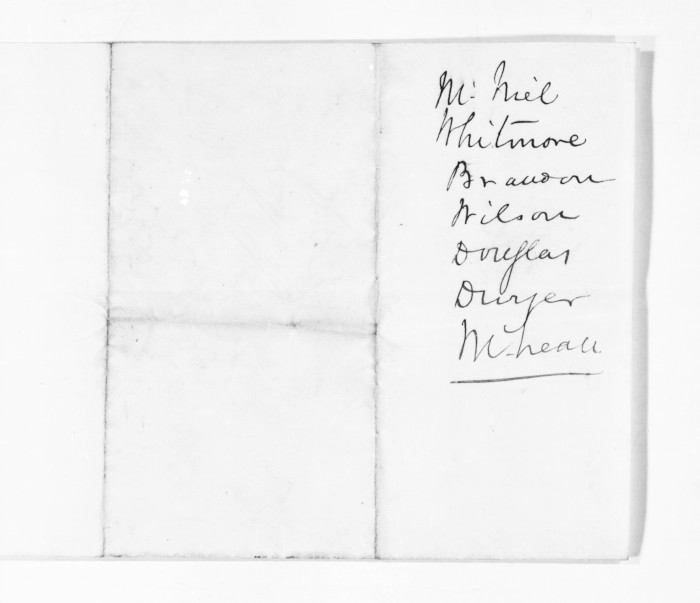 Mc Niel
Whitmore
Brandon
Wilson
Douglas
Dwyer
McLean